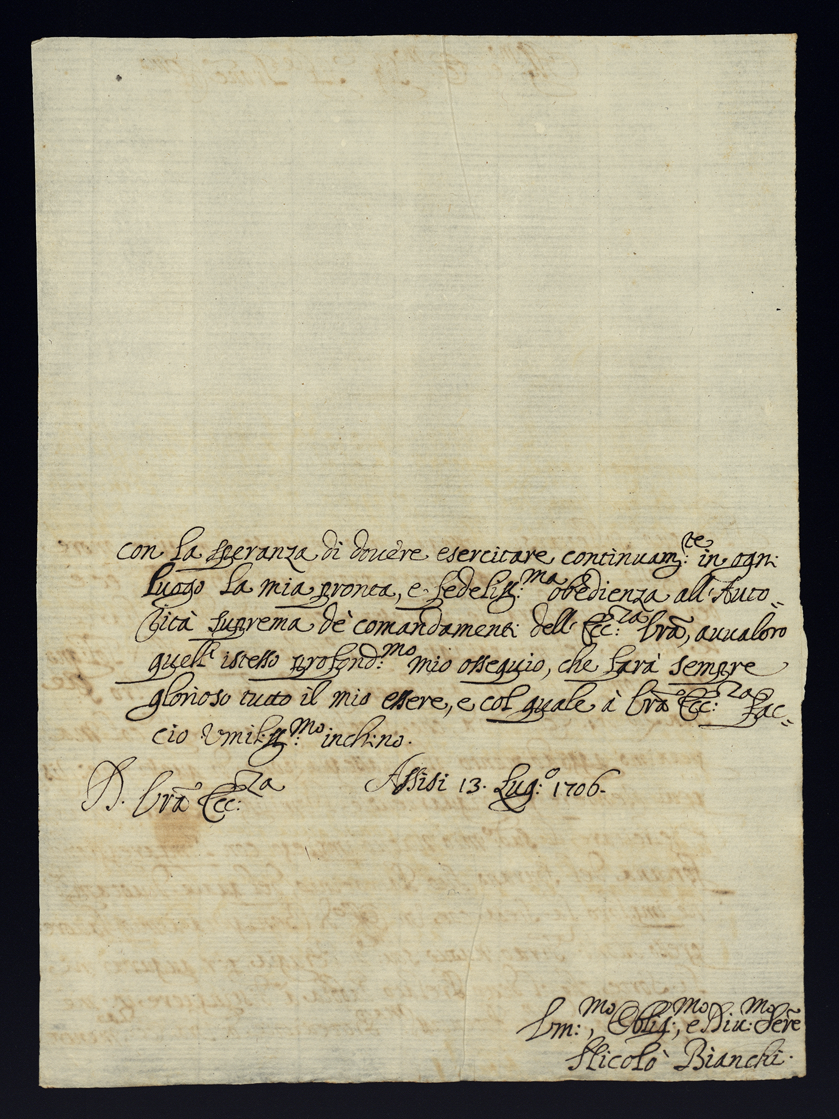 con la speranza di douere esercitare continuam:te in ogni
luogo la mia pronta, e fedeliss:ma obedienza all'Auto=
rità suprema de comandamenti dell'Ecc:za Vra, auualoro
quell'istesso profond:mo mio ossequio, che farà sempre
glorioso tutto il mio essere, e col quale à Vra Ecc:za fac=
cio Vmiliss:mo inchino.
D. Vra Ecc:za Assisi 13. Lug:o 1706.
Vm:mo, Oblig:mo, e Diu:mo Sere
Nicolò Bianchi.